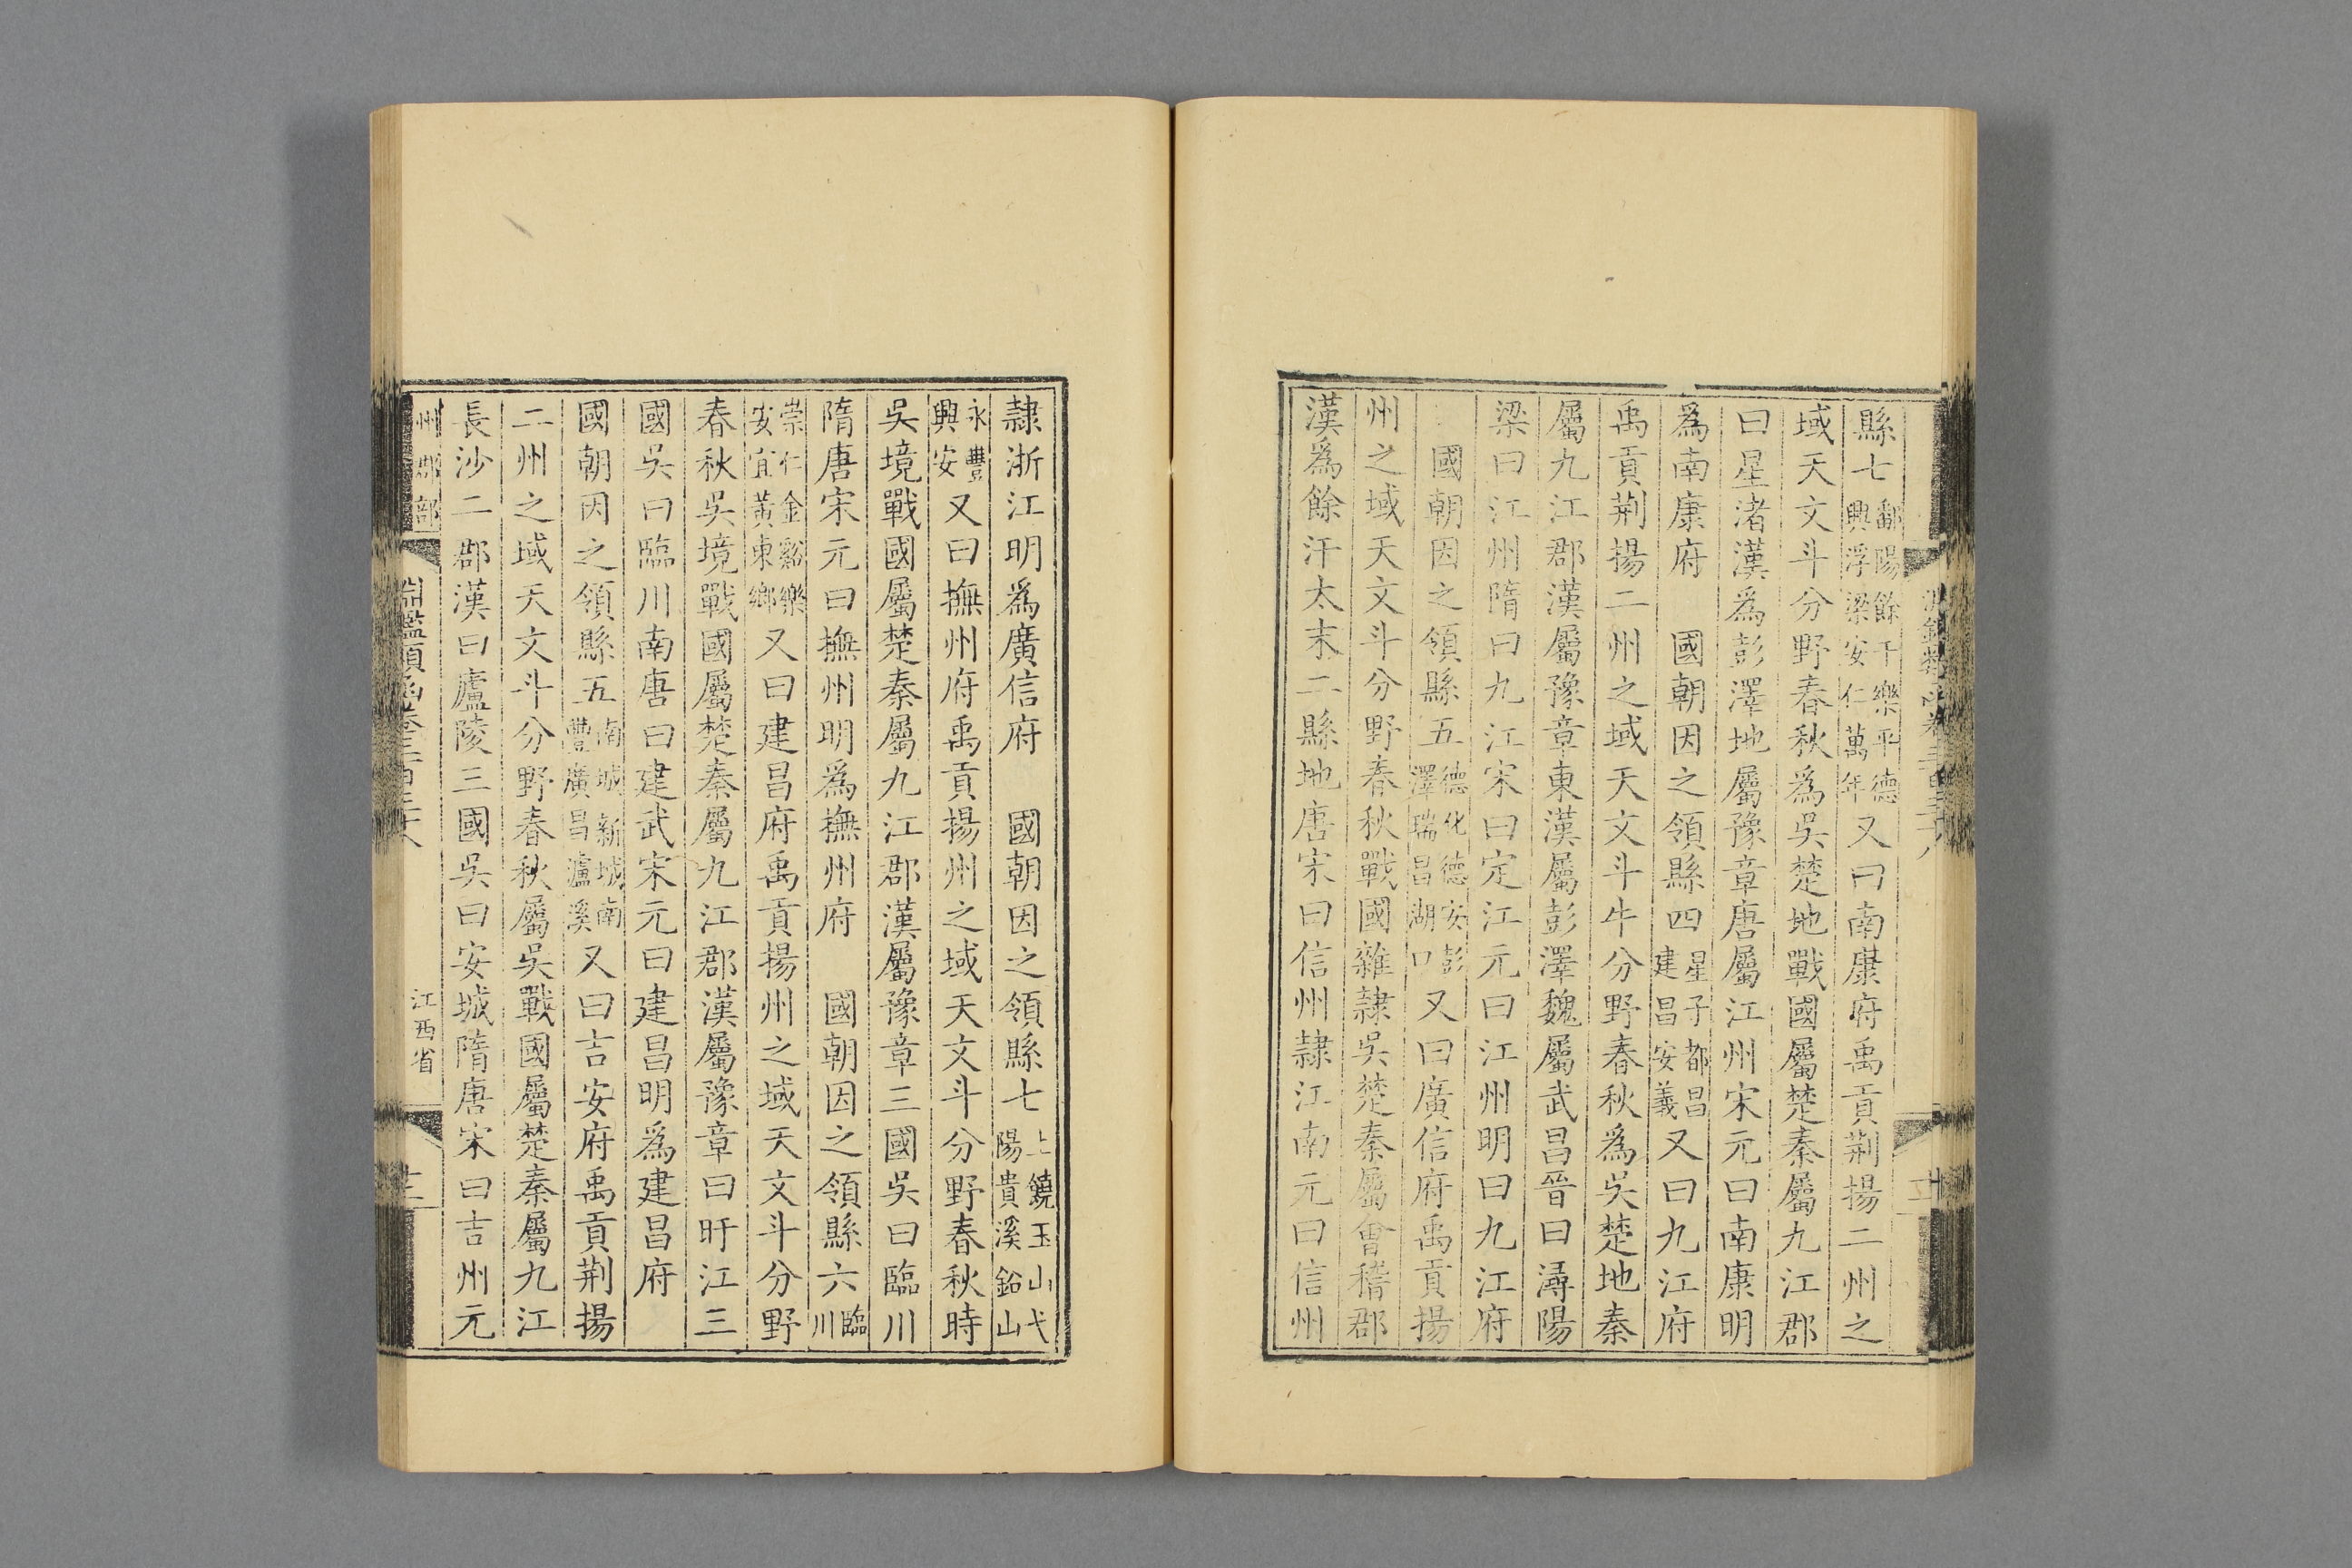 縣七鄱陽餘干樂平德興浮梁安仁萬年又曰南康府禹貢荆揚二州之
域天文斗分野春秋為吳楚地戰國屬楚秦屬九江郡
曰星渚漢為彭澤地屬豫章唐屬江州宋元曰南康明
為南康府　國朝因之領縣四星子都昌建昌安義又曰九江府
禹貢荆揚二州之域天文斗牛分野春秋為吳楚地秦
屬九江郡漢屬豫章東漢屬彭澤魏屬武昌晉曰潯陽
梁曰江州隋曰九江宋曰定江元曰江州明曰九江府
國朝因之領縣五德化德安彭澤瑞昌湖口又曰廣信府禹貢揚
州之域天文斗分野春秋戰國雜隷吳楚秦屬會稽郡
漢為餘汗太末二縣地唐宋曰信州隷江南元曰信州
隷浙江明為廣信府　國朝因之領縣七上鐃玉山弋陽貴溪鉛山
永豐興安又曰撫州府禹貢揚州之域天文斗分野春秋時
吳境戰國屬楚秦屬九江郡漢屬豫章三國吳曰臨川
隋唐宋元曰撫州明為撫州府　國朝因之領縣六臨川
崇仁金谿樂安宜黃東鄉又曰建昌府禹貢揚州之域天文斗分野
春秋吳境戰國屬楚秦屬九江郡漢屬豫章曰旴江三
國吳曰臨川南唐曰建武宋元曰建昌明為建昌府
國朝因之領縣五南城新城南豐廣昌瀘溪又曰吉安府禹貢荆揚
二州之域天文斗分野春秋屬吳戰國屬楚秦屬九江
長沙二郡漢曰廬陵三國吳曰安城隋唐宋曰吉州元
州郡部
淵鑑類函卷三百三十八
江西省